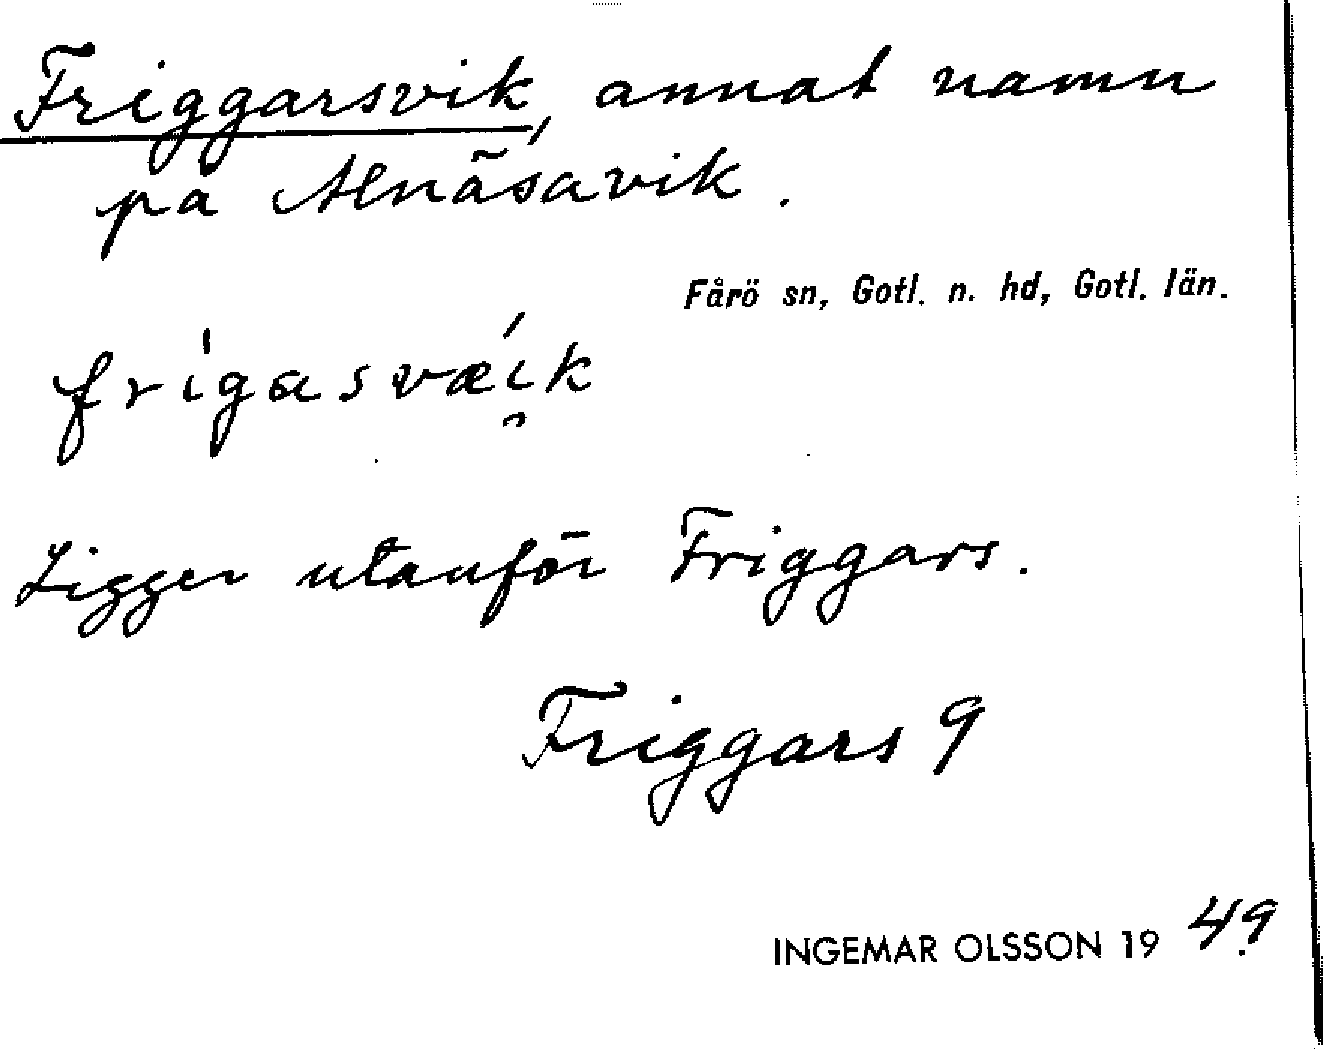 Friggarsvik, annat namn
på Alnäsavik.
Fårö sn, Gotl. n. hd, Gotl. län.
frigasvæi̯k
Ligger utanför Friggars.
Friggars 9
INGEMAR OLSSON 1949.